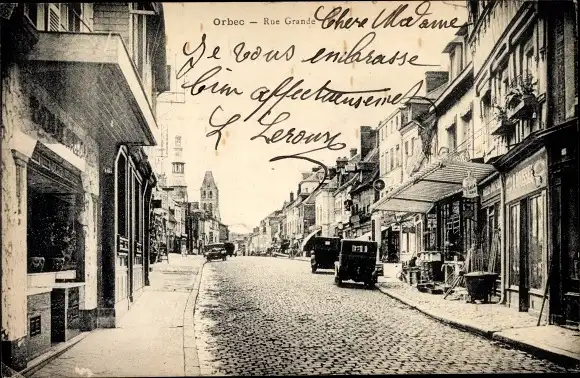 Orbec — Rue Grande
Chère Madame
Je vous embrasse
bien affectueusement
L. Leroux